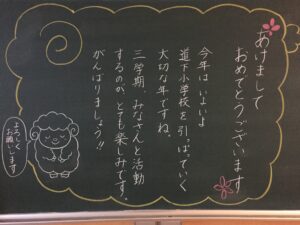 あけまして
おめでとうございます
今年は いよいよ
道下小学校を引っぱっていく
大切な年ですね。
三学期、みなさんと活動
するのが、とても楽しみです。
がんばりましょう!!
よろしく
お願いします